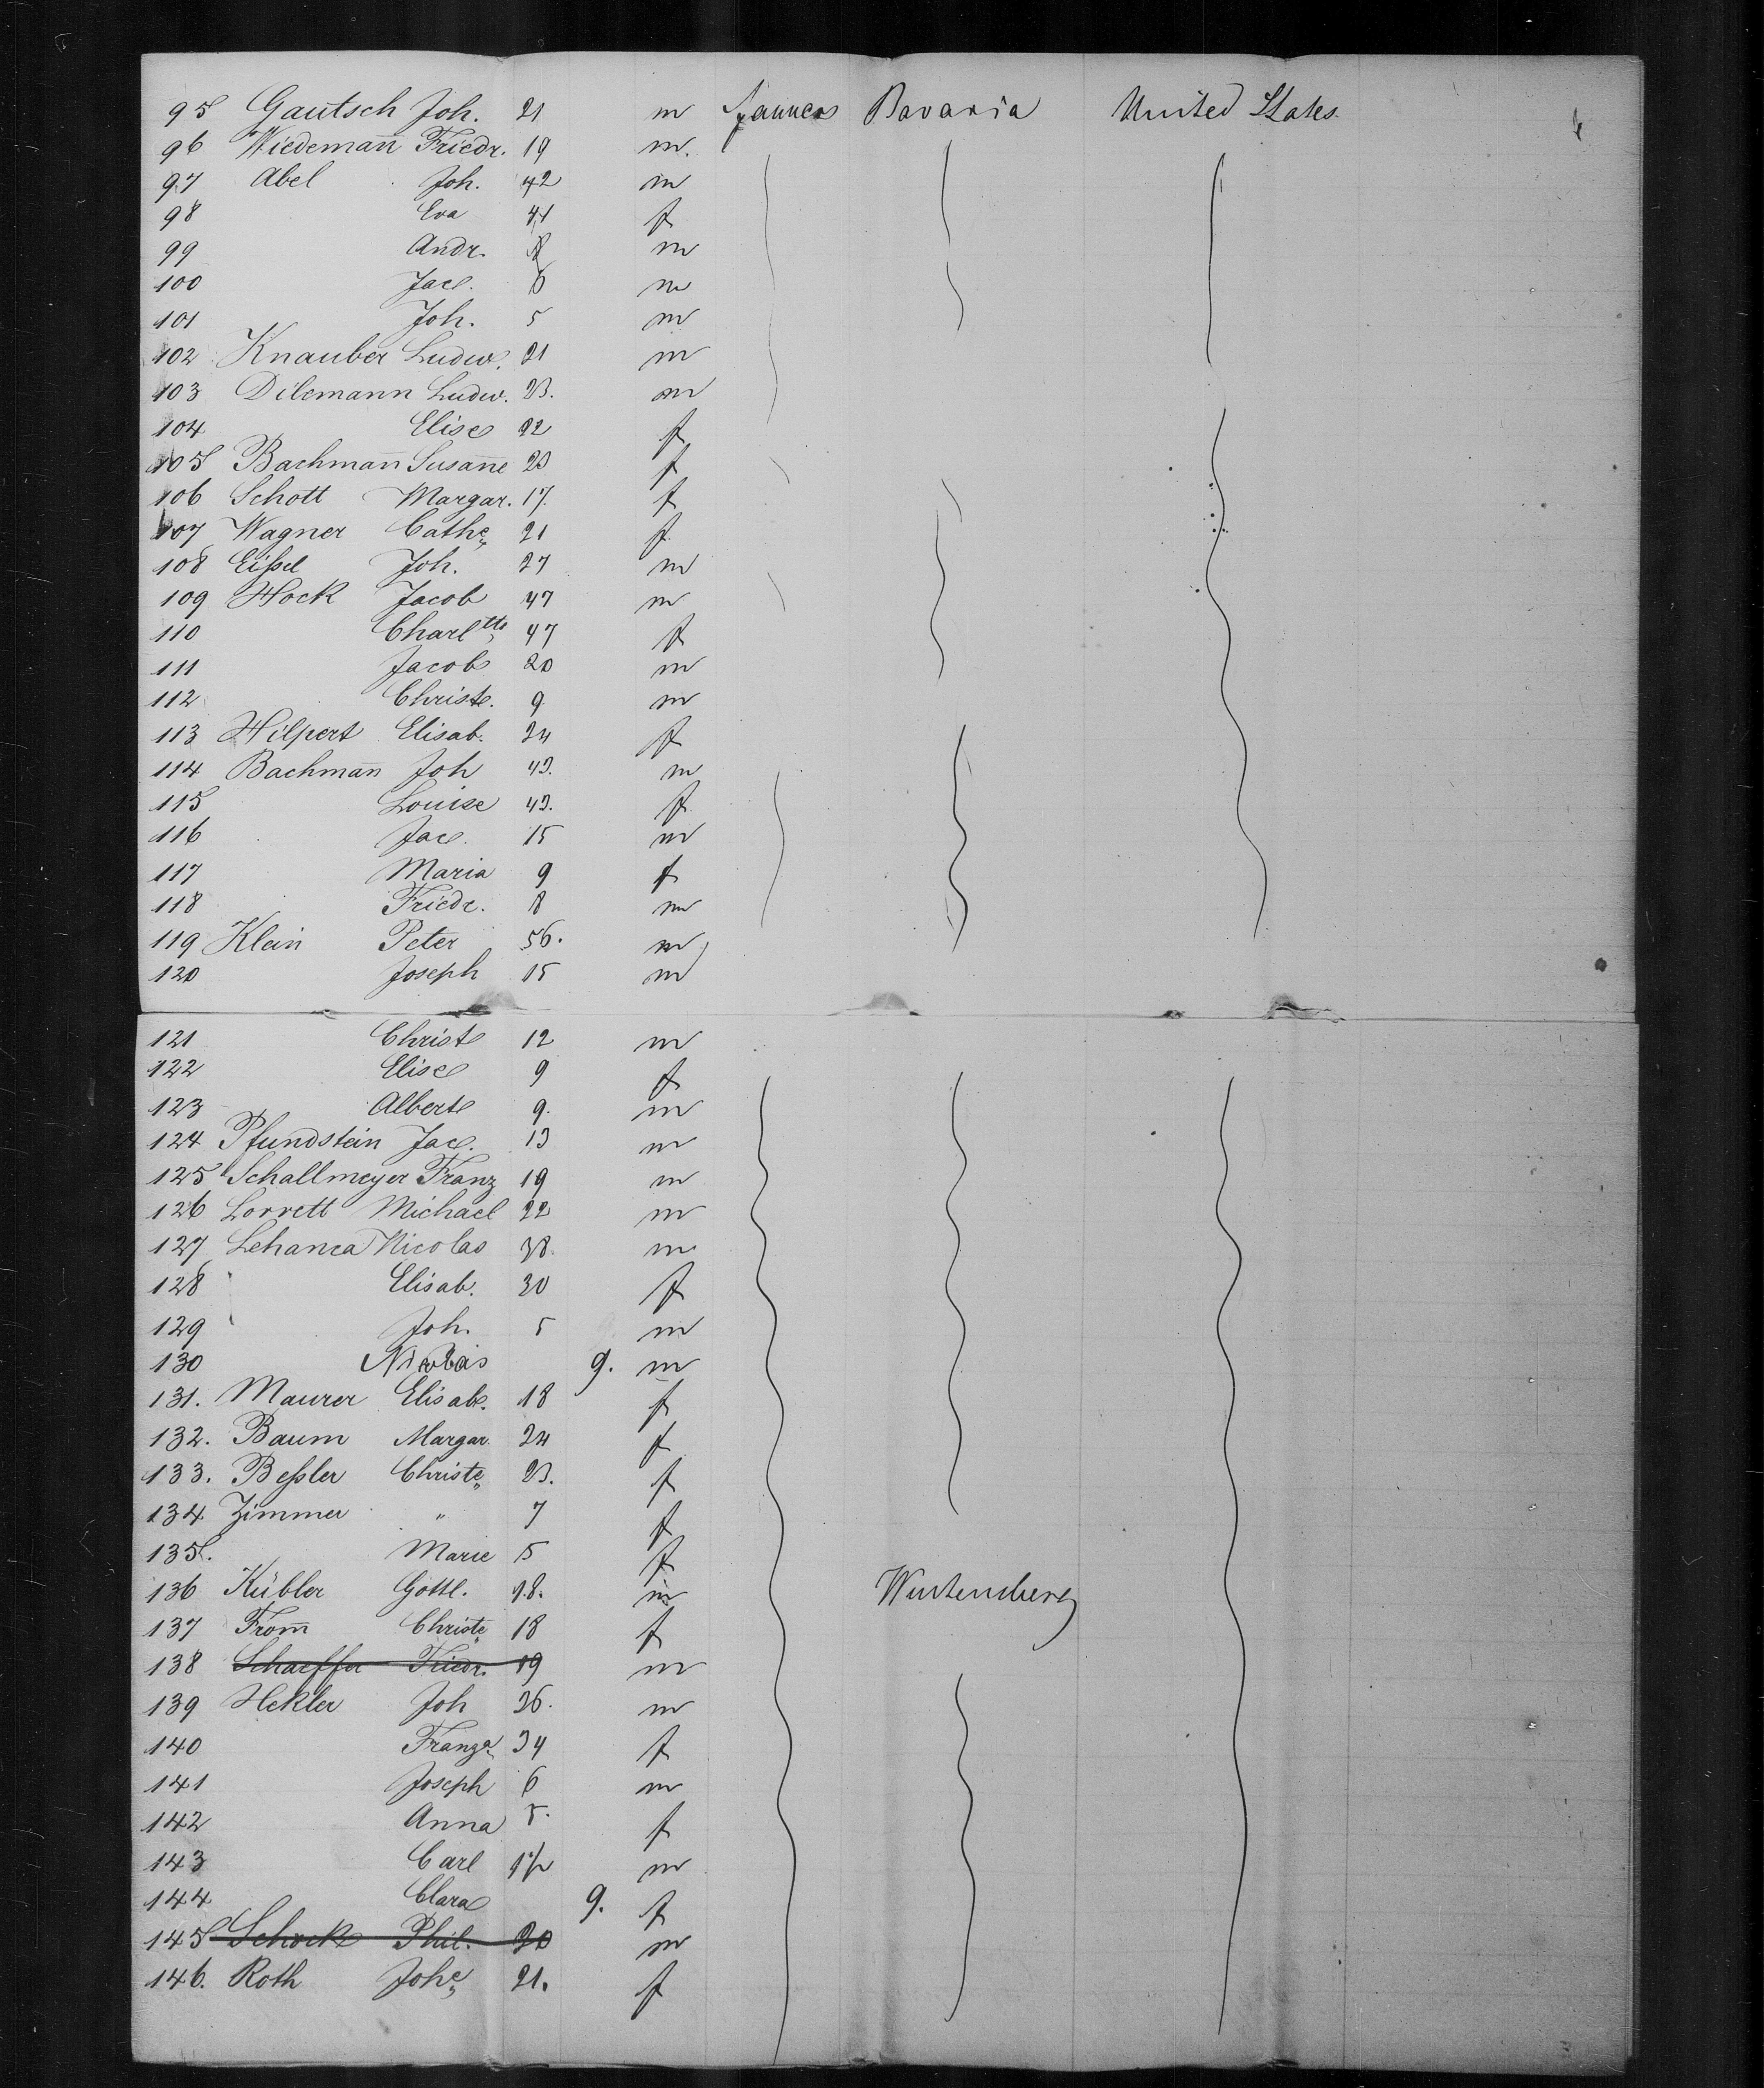 95 Gautsch Joh. 21 m farmer Bavaria United States
96 Wiedemañ Friedr. 19 m.
97 Abel Joh. 42 m
98 Eva 41 f
99 Andr. 8 m
100 Jac. 6 m
101 Joh. 5 m
102 Knauber Ludw. 21 m
103 Dilemann Ludw. 23. m
104 Elise 22 f
105 Bachmañ Susañe 20 f
106 Schott Margar. 17. f
107 Wagner Cathe 21 f
108 Eißel Joh. 27 m
109 Hock Jacob 47 m
110 Charltte 47 f
111 Jacob 20 m
112 Christ. 9 m
113 Hilpert Elisab. 24 f
114 Bachmañ Joh 43. m
115 Louise 43. f
116 Jac. 15 m
117 Maria 9 f
118 Friedr. 8 m
119 Klein Peter 56. m
120 Joseph 15 m
121 Christ 12 m
122 Elise 9 f
123 Albert 9. m
124 Pfundstein Jac. 13 m
125 Schallmeyer Franz 19 m
126 Lorrett Michael 22 m
127 Lehanca Nicolas 38. m
128 Elisab. 30 f
129 Joh. 5 m
130 Nicolais 9. m
131. Maurer Elisab. 18 f
132. Baum Margar. 24 f
133. Beßler Christe 23. f
134. Zimmer " 7 f
135. Marie 5 f
136 Kübler Gottl. 18. m Wurtemberg
137 From̄ Christe 18 f
138 Schaeffer Friedr. 19 m
139 Hekler Joh 36. m
140 Franza 34 f
141 Joseph 6 m
142 Anna 5. f
143 Carl 1½ m
144 Clara 9. f
145 Schock Phil. 20 m
146. Roth Johe 21. f